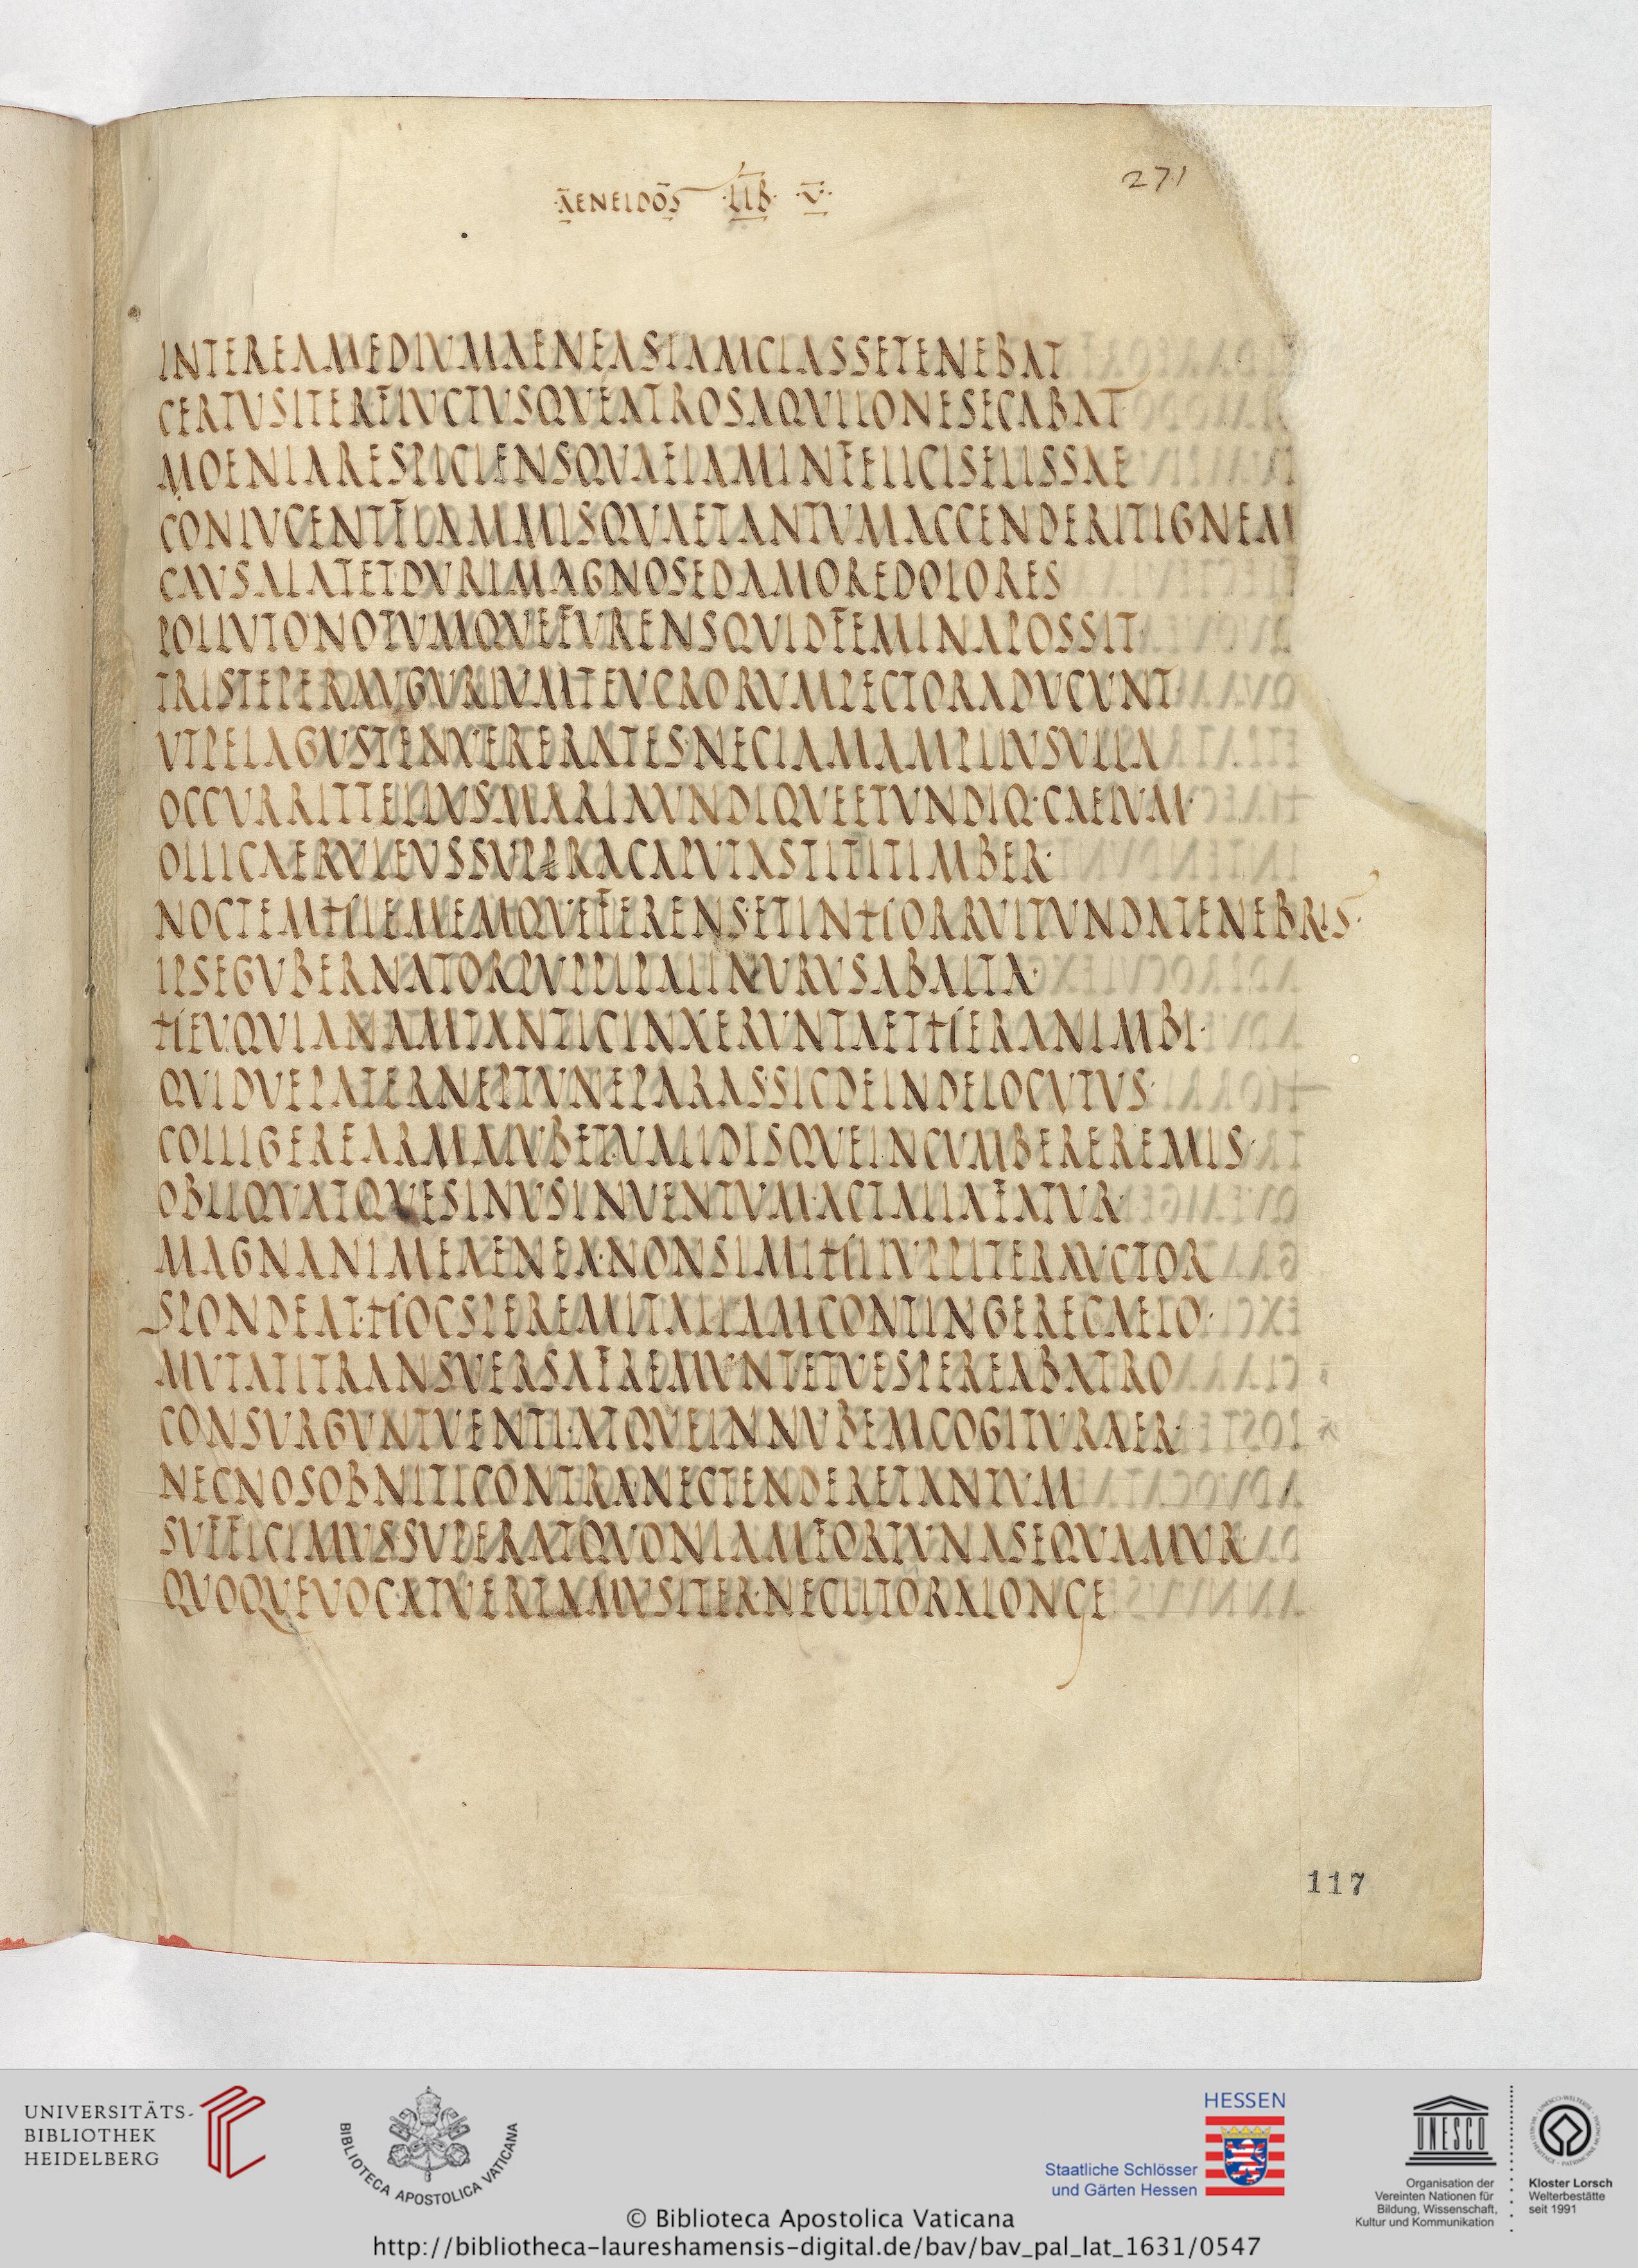 AENEIDOS LIB V
271
INTEREAMEDIVMAENEASIAMCLASSETENEBAT
CERTVSITERFLVCTVSQVEATROSAQVILONESECABAT
MOENIARESPICIENSQVAEIAMINFELICISELISSAE
CONLVCENTFLAMMISQVAETANTVMACCENDERITIGNEM
CAVSALATET·DVRIMAGNOSEDAMOREDOLORES
POLLVTONOTVMQVEFVRENSQVIDFEMINAPOSSIT·
TRISTEPERAVGVRIVMTEVCRORVMPECTORADVCVNT·
VTPELAGVSTENVERERATES·NECIAMAMPLIVSVLLA
OCCVRRITTELLVSMARIAVNDIQVEETVNDIQ·CAELVM·
OLLICAERVLEVSSVPPRACAPVTASTITITIMBER·
NOCTEMHIEMEMQVEFERENS·ETINHORRVITVNDATENEBRIS·
IPSEGVBERNATORPVPPIPALINVRVSABALTA·
HEVQVIANAMTANTICINXERVNTAETHERANIMBI·
QVIDVEPATERNEPTVNEPARAS·SICDEINDELOCVTVS·
COLLIGEREARMAIVBET·VALIDISQVEINCVMBEREREMIS·
OBLIQVATQVESINVSINVENTVM·ACTALIAFATVR·
MAGNANIMEAENEA·NONSIMIHIIVPPITERAVCTOR
SPONDEAT·HOCSPEREMITALIAMCONTINGERECAELO·
MVTATITRANSVERSAFREMVNT·ETVESPEREABATRO
CONSVRGVNTVENTI·ATQVEINNVBEMCOGITVRAER·
NECNOSOBNITICONTRA·NECTENDERETANTVM
SVFFICIMVSSVPERATQVONIAMFORTVNASEQVAMVR·
QVOQVEVOCATVERTAMVSITER·NECLITORALONGE
117
UNIVERSITÄTS-
BIBLIOTHEK
HEIDELBERG
BIBLIOTECA APOSTOLICA VATICANA
HESSEN
Staatliche Schlösser
und Gärten Hessen
UNESCO
Organisation der
Vereinten Nationen für
Bildung, Wissenschaft,
Kultur und Kommunikation
Kloster Lorsch
Welterbestätte
seit 1991
© Biblioteca Apostolica Vaticana
http://bibliotheca-laureshamensis-digital.de/bav/bav_pal_lat_1631/0547